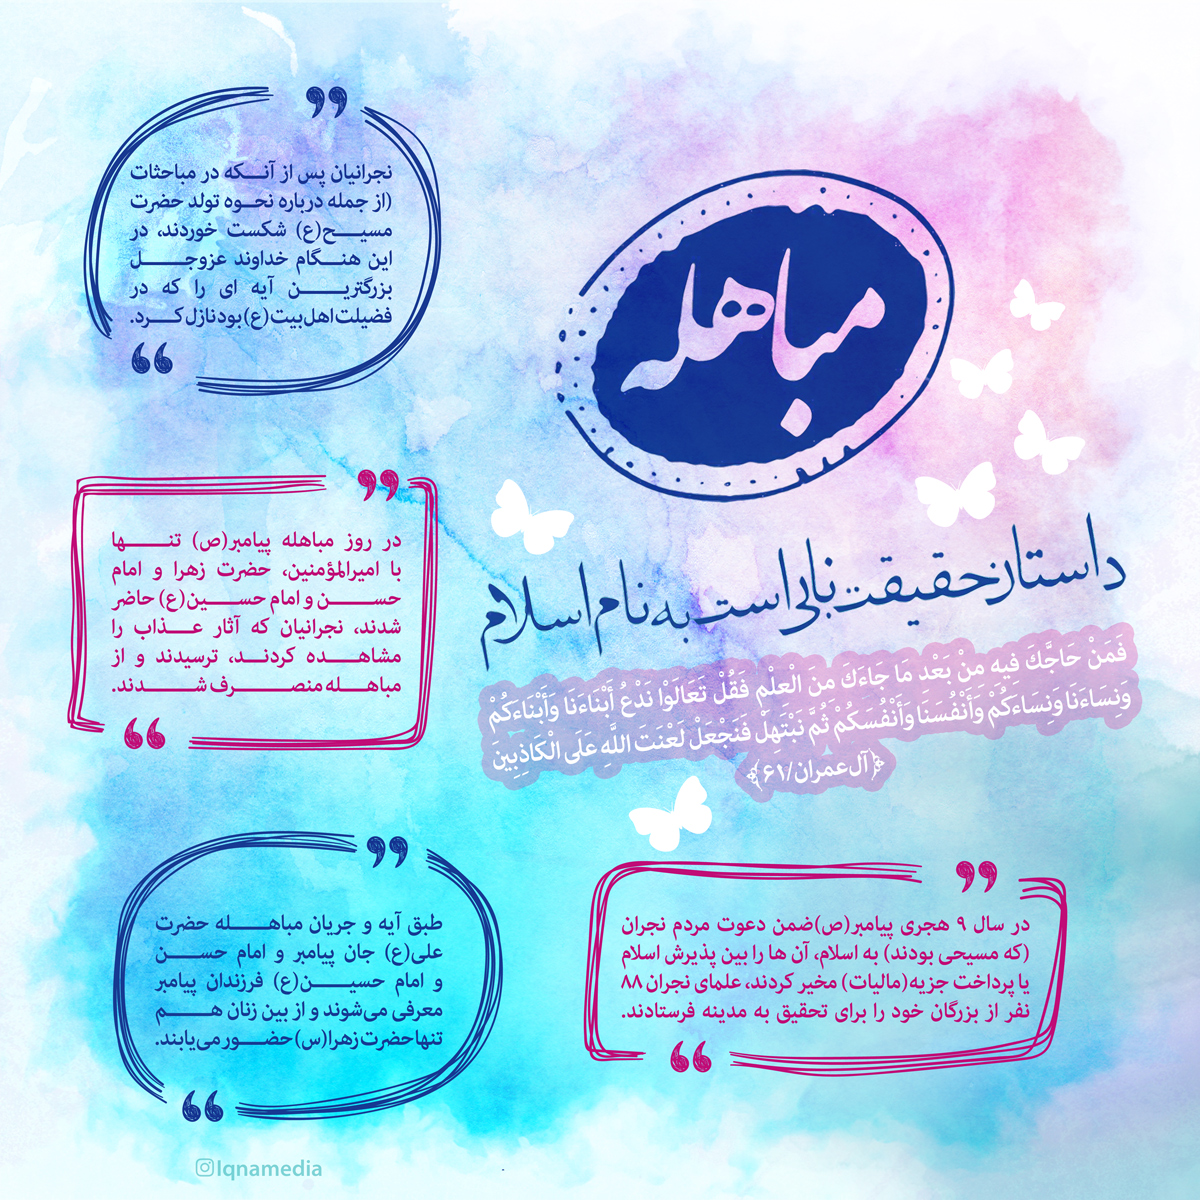 مباهله
داستان حقیقت نابی است به نام اسلام
فَمَنْ حَاجَّكَ فِیهِ مِنْ بَعْدِ مَا جَاءَكَ مِنَ الْعِلْمِ فَقُلْ تَعَالَوْا نَدْعُ أَبْنَاءَنَا وَأَبْنَاءَكُمْ
وَنِسَاءَنَا وَنِسَاءَكُمْ وَأَنْفُسَنَا وَأَنْفُسَكُمْ ثُمَّ نَبْتَهِلْ فَنَجْعَلْ لَعْنَتَ اللَّهِ عَلَى الْكَاذِبِينَ
﴿آل‌عمران/۶۱﴾
در سال ۹ هجری پیامبر(ص)ضمن دعوت مردم نجران
(که مسیحی بودند) به اسلام، آن ها را بین پذیرش اسلام
یا پرداخت جزیه(مالیات) مخیر کردند، علمای نجران ۸۸
نفر از بزرگان خود را برای تحقیق به مدینه فرستادند.
نجرانیان پس از آنکه در مباحثات
(از جمله درباره نحوه تولد حضرت
مسیح(ع) شکست خوردند، در
این هنگام خداوند عزوجل
بزرگترین آیه ای را که در
فضیلت اهل بیت(ع) بود نازل کرد.
در روز مباهله پیامبر(ص) تنها
با امیرالمؤمنین، حضرت زهرا و امام
حسن و امام حسین(ع) حاضر
شدند، نجرانیان که آثار عذاب را
مشاهده کردند، ترسیدند و از
مباهله منصرف شدند.
طبق آیه و جریان مباهله حضرت
علی(ع) جان پیامبر و امام حسن
و امام حسین(ع) فرزندان پیامبر
معرفی می‌شوند و از بین زنان هم
تنها حضرت زهرا(س) حضور می‌یابند.
Iqnamedia